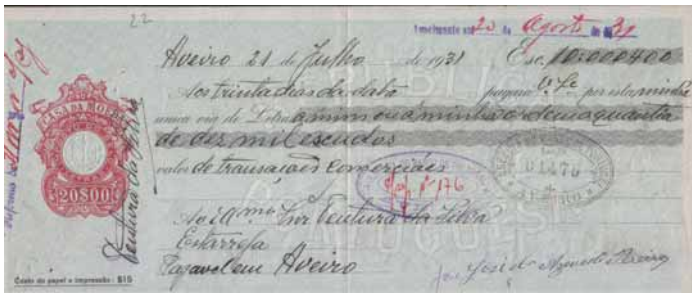 22
Vencimento em 20 de Agosto de 1931
Aveiro 21 de Julho de 1931 Esc. 10:000$00
Aos trinta dias da data pagará V. Sa. por esta minha
única via de Letra a mim ou á minha ordem a quantia
de dez mil escudos
valor de transações comerciais
Ao Ilmo Snr Ventura da Silva
Estarreja
Pagavel em Aveiro
José d' Azevedo
CASA DA MOEDA
20$00
Custo do papel e impressão: $15
Ventura da Silva
176
01476
AVEIRO